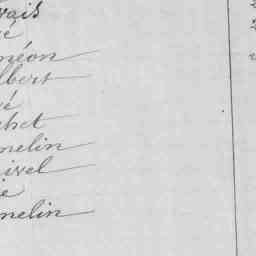 vais
é
néon
lbert
é
chet
melin
ivel
ie
melin